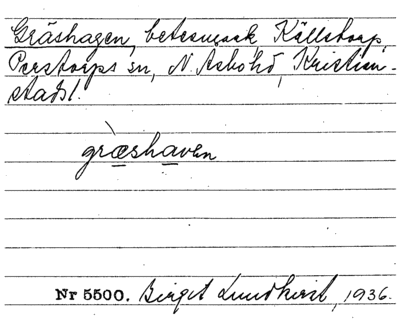 Gräshagen, betesmark, Källstorp,
Perstorps sn, N. Åsbo hd, Kristian-
stads l.
græshaven
Nr 5500. Birgit Lundkvist, 1936.